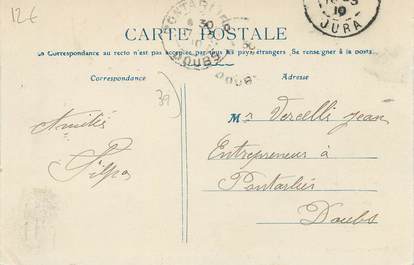 12€
CARTE POSTALE
JURA
PONTARLIER
DOUBS
La Correspondance au recto n'est pas acceptée par tous les pays étrangers. Se renseigner à la poste.
Correspondance
Adresse
39
Mr Vercelli Jean
Amitiés
Entrepreneur à
Pontarlier
Doubs